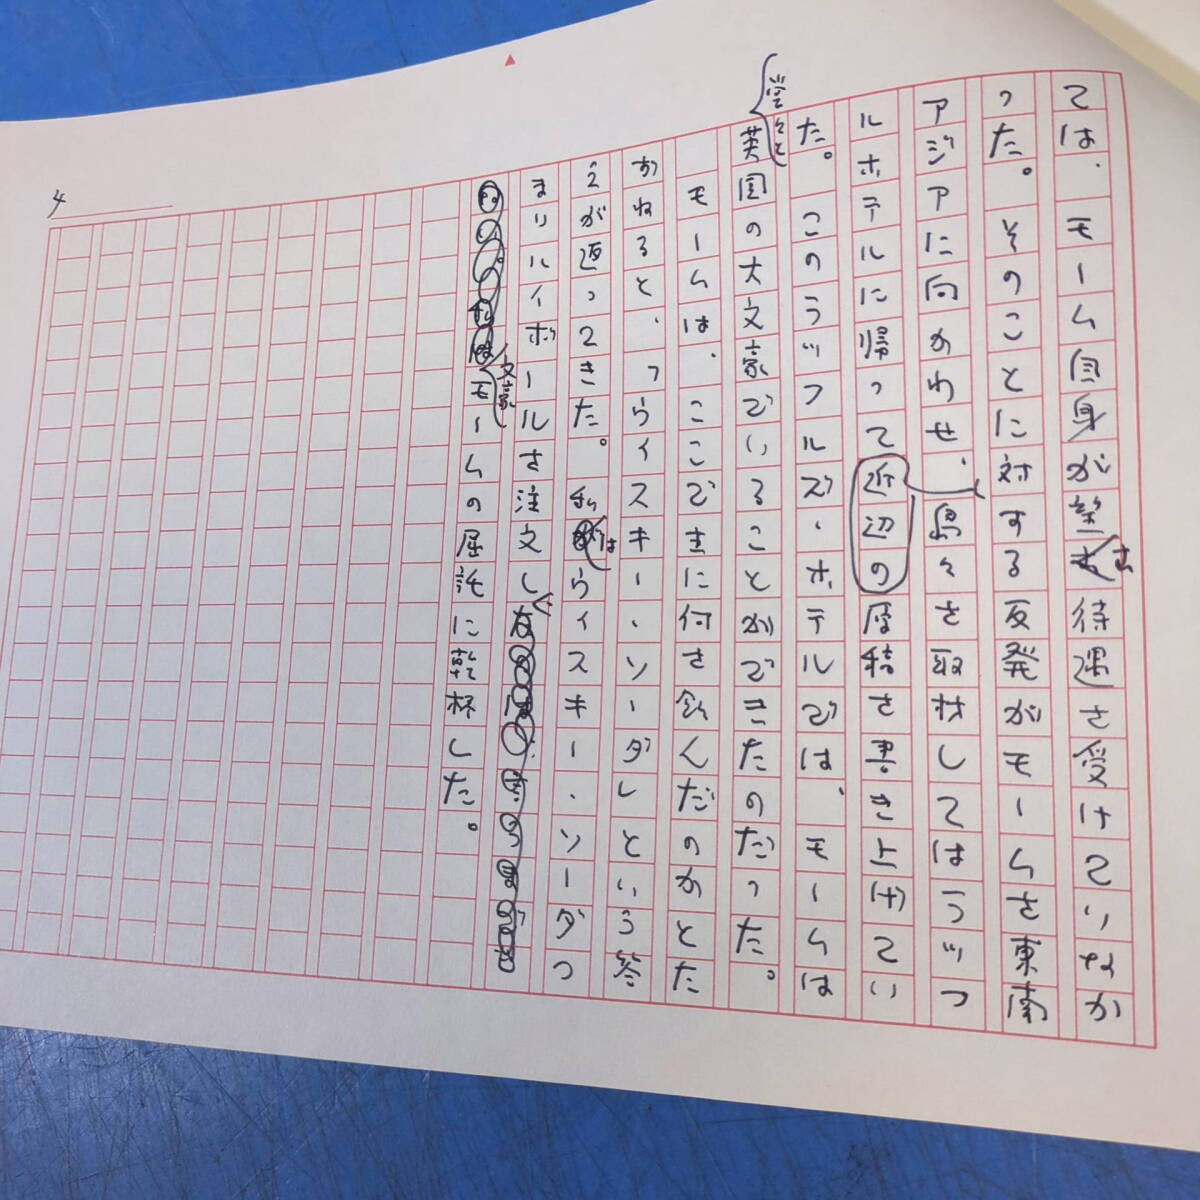 ては、モーム自身が望む待遇を受けていなか
った。そのことに対する反発がモームを東南
アジアに向かわせ、近辺の島々を取材してはラッフ
ルホテルに帰って原稿を書き上げてい
た。このラッフルズ・ホテルでは、モームは
堂々と英国の大文豪でいることができたのだった。
モームは、ここで主に何を飲んだのかとた
ずねると、「ウイスキー・ソーダ」という答
えが返ってきた。私はウイスキー・ソーダつ
まりハイボールを注文して
文豪モームの屈託に乾杯した。
4